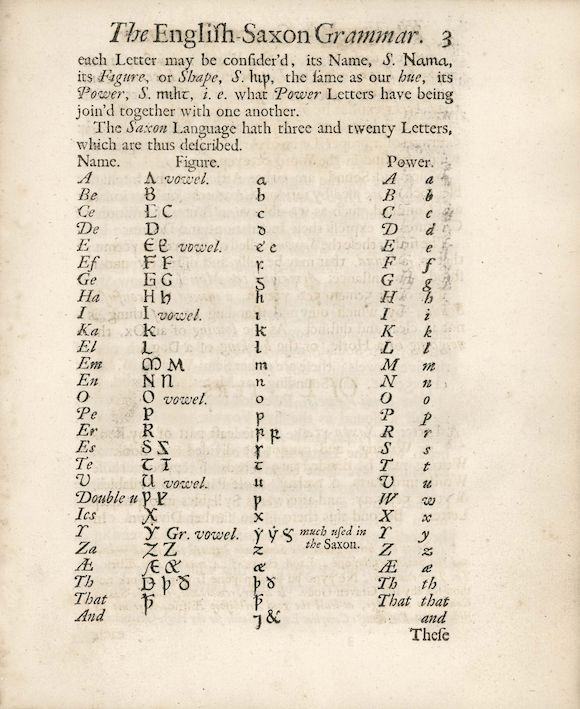 The Engliſh-Saxon Grammar. 3
each Letter may be conſider'd, its Name, S. Nama,
its Figure, or Shape, S. hıƿ, the ſame as our hue, its
Power, S. mıhꞇ, i. e. what Power Letters have being
join'd together with one another.
The Saxon Language hath three and twenty Letters,
which are thus deſcribed.
Name. Figure. Power.
A Λ vowel. a A a
Be B b B b
Ce E C c C c
De D ꝺ D d
E Є E vowel. e e E e
Ef F F ꝼ F f
Ge G G ᵹ G g
Ha H h h H h
I I vowel. ı I i
Ka k k K k
El L l L l
Em M M m M m
En N N n N n
O O vowel. o O o
Pe P p P p
Er R ꞃ ꞃ R r
Es S Z s S s
Te Ꞇ T ꞇ T t
V U vowel. u U u
Double u Ƿ Ƿ ƿ W w
Ics X x X x
Y Ẏ Y Gr. vowel. ẏ ẏ ꞅ much uſed in Y y
the Saxon.
Za Z Z z Z z
Æ Æ Æ æ Æ æ
Th Ð þ ð þ ð Th th
That Ꝥ ꝥ That that
And ⁊ & and
Theſe